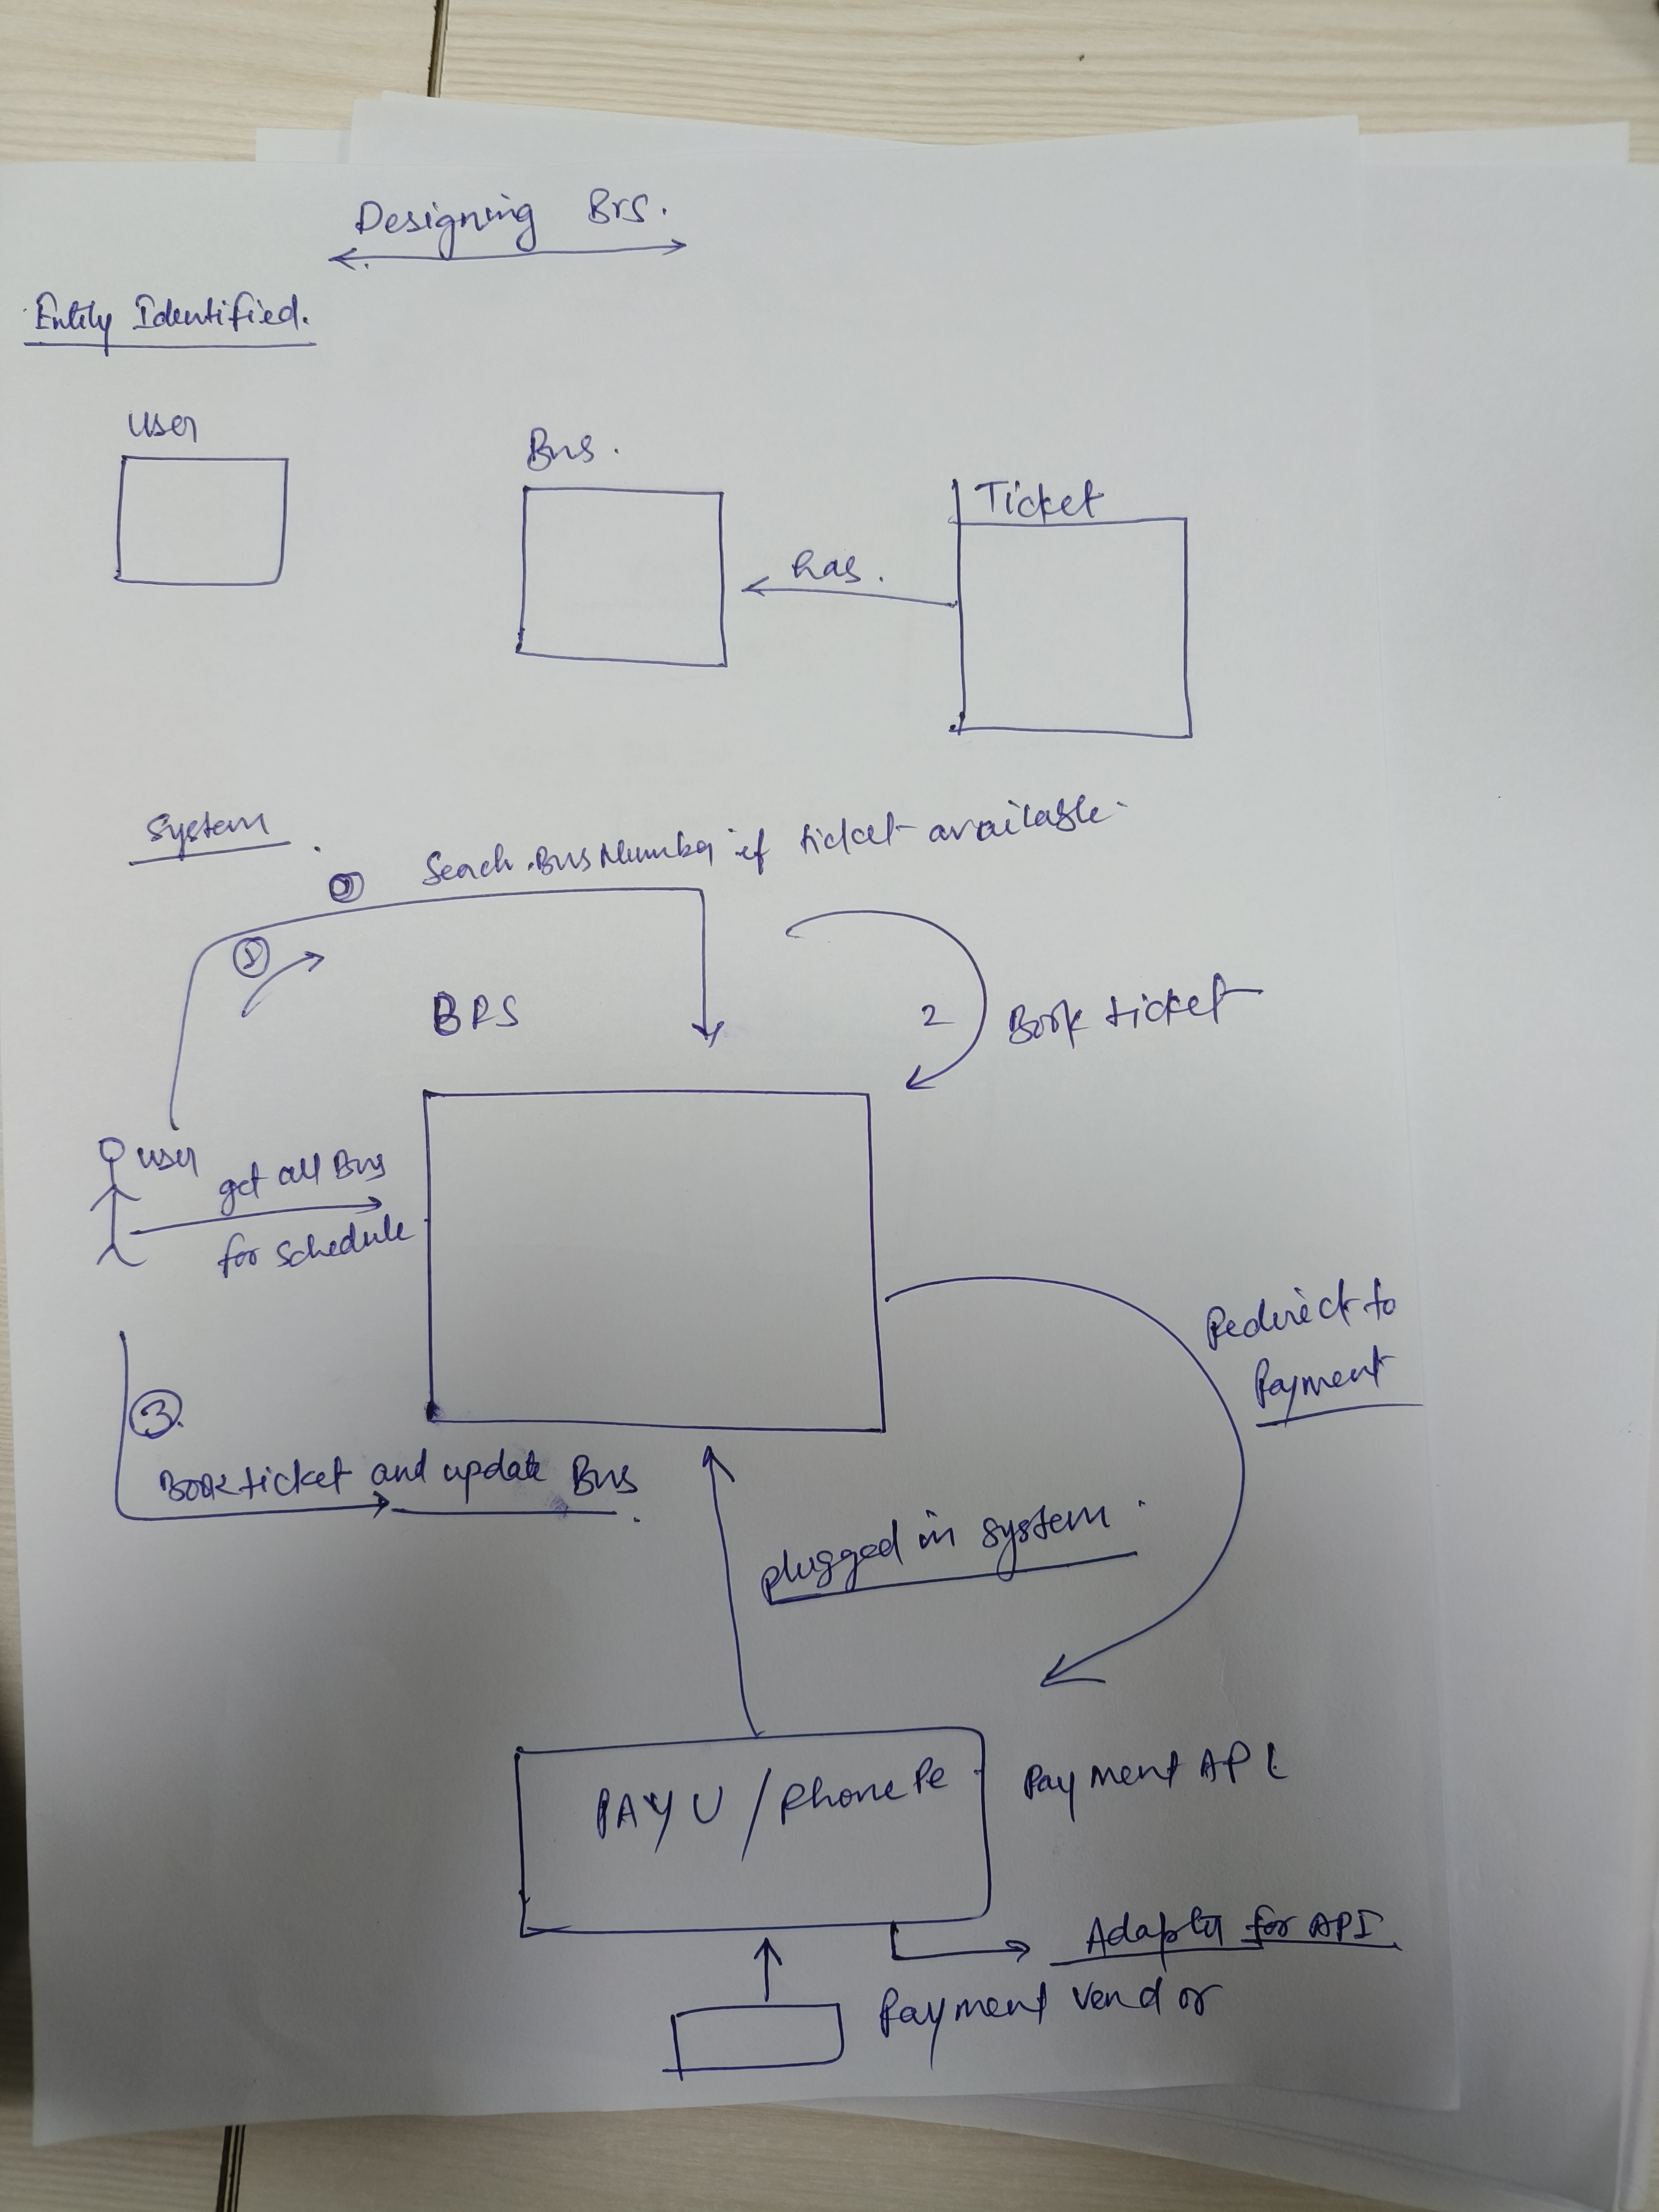 Designing Brs.
Entity Identified.
User
Bus.
Ticket
has.
System
Seach Bus Number if ticket available
BRS
2
Book ticket
user
get all Bus
for schedule
Redirect to
Payment
3.
Book ticket and update Bus
plugged in system
PAYU / PhonePe
Payment API
Adapter for API
Payment Vendor